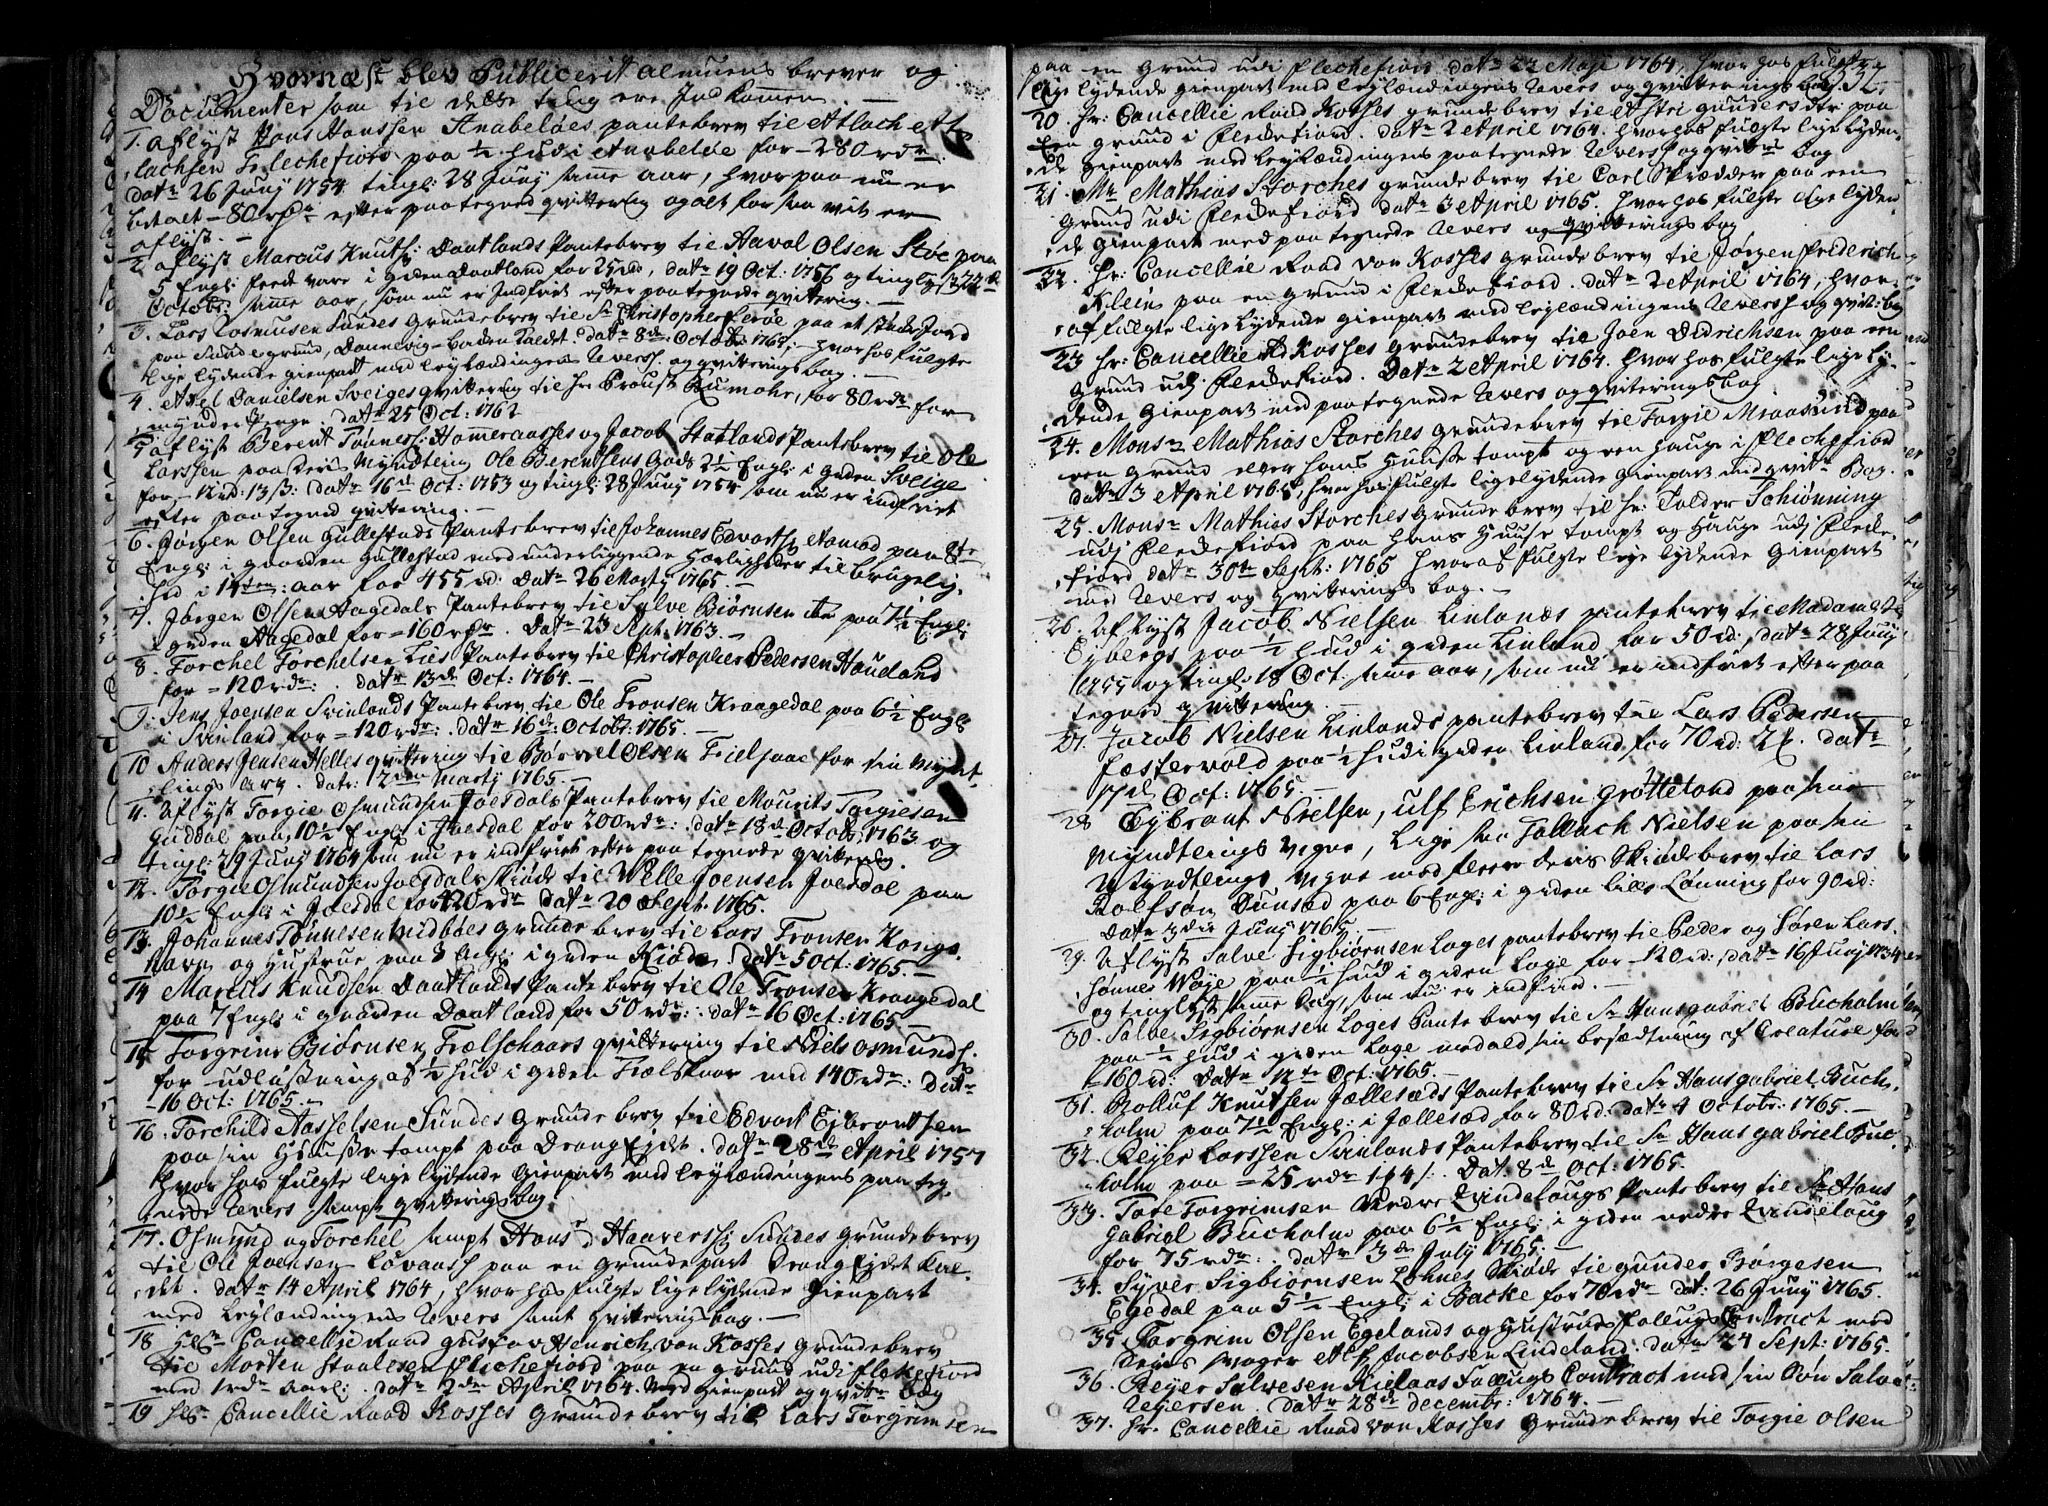 Hvornæst blev Publicerit Almuens brever og
Documenter som til dette ting ere Indkommen. —
1. aflyst Hans Hanssen Anabeløes pantebrev til Atlach Att-
lachsen Flechefiord paa ½ hud i Anabeløe for 280 rdr:
dat: 26 Juny 1754 tingl: 28 Juny samme aar, hvorpaa nu er
betalt — 80 rdr efter paategned qvittering og alt for saa vit er
aflyst. —
2. aflyst Marcus Knuths: Daatlands Pantebrev til Aavol Olsen Støc paa
5 Engl: feede vare i Grden Daatland for 25 rd, dat: 19 Oct: 1756 og tinglyst 22de
Octobr: samme aar, som nu er Indfriet efter paategnede qvittering. —
3. Lars Rasmusen Sundes Grundebrev til Sr Christopher Ferøe paa et støcke Jord
paa Sunde grund, Dannevig-backen kaldet. dat: 8de Octobr: 1765, — hvorhos fulgte
lige lydende gienpart med leylændingens Revers: og qvitterings bog. —
4. Axel Danielsen Sveiges qvittering til Hr Proust Rumohr, for 80 rdr for
mynder penge. dat: 25 Oct: 1762
5 aflyst Berent Tønness: Hammeraasses og Jacob Statlands Pantebrev til Ole
Larssen paa deris Myndtling Ole Berentsens Gods 2½ Engl: i Grden Sveige
for — 12 rd: 13 s: dat: 16de Oct: 1753 og tingl: 28 Juny 1754 som nu er indfriet
efter paategned qvittering. —
6. Jørgen Olsen Gullestads Pantebrev til Johannes Edvorths: Aamod paa 8te
Engl: i gaarden Gullestad med underliggende Herligheder til brugelig-
hed i 14ten: aar for 455 rd: Dat: 26 Marty 1765. —
7. Jørgen Olsen Aagedals Pantebrev til Salve Biørnsen ibm paa 7½ Engl:
i grden Aagedal for = 160 rdr. Dat: 23 Sept: 1763. —
8. Torchel Torchelsen Lies Pantebrev til Christopher Pedersen Houeland
for = 120 rdr: dat: 13de Oct: 1764. —
9: Jens Joensen Svinlands Pantebrev til Ole Tronsen Kraagedal paa 6½ Engl:
i Svinland for = 120 rdr: dat: 16de Octobr: 1765. —
10 Anders Jensen Helles qvittering til Børvel Olsen Fielsaae for sin Myndt-
lings Arv. dat: 12den Marty 1765. —
11. Aflyst Torgie Osmundsen Joesdals Pantebrev til Mourits Torgiesen
Guddal paa 10½ Engl: i Joesdal for 200 rdr: dat: 18de Octobr: 1763 og
tingl: 29 Juny 1764 som nu er indfriet efter paategnede qvittering.
12. Torgie Osmundsen Joesdals skiøde til Welle Joensen Joesdal paa
10½ Engl: i Joesdal for 220 rdr Dat: 20 Sept: 1765.
13. Johannes Tønnesen Midbøes grunde brev til Lars Tronsen Kongs-
havn og Hustrue paa 3 Engl: i grden Kiøde. dat: 5 Oct: 1765. —
14 Marcus Knudsen Daatlands Pante brev til Ole Tronsen Kraagedal
paa 7 Engl: i gaarden Daatland for 50 rdr: dat: 16 Oct: 1765 —
15. Torgrim Biørnsen Fielschaars qvittering til Niels Osmunds:
for udløsning af ½ hud i grden Fielskaar med 140 rdr: dat:
16 Oct: 1765. —
16. Torchild Aasselsen Sundes Grunde brev til Edvort Ejbrontsen
paa sin Huuse tompt paa Drang Ejdet. dat: 28de April 1757
hvor hos fulgte lige lydende Gienpart med leylændingens paateg-
nede Revers sampt qvitteringsbog.
17. Osmund og Torchel sampt Hans Haavorss: Sundes Grundebrev
til Ole Joensen Løvaas paa en grundepart Drang Ejdet kal-
det. dat: 14 April 1764, hvor hos fulgte lige lydende Gienpart
med leylændingens Revers samt qvitteringsbog. —
18 Hr Cancellie Raad Gustav Henrich von Kosses Grundebrev
til Morten Staalesen Flechefiord paa en grund udi Flekefiord
med 1 rdr aarl: dat: 2den April 1764. Med Gienpart og qvitr: bog
19 Hr Cancellie Raad Kosses grundebrev til Lars Torgrimsen
paa en Grund udi Flechefiord dat: 22 Maji 1764, hvor hos fulgte
lige lydende gienpart med leylændingens Revers og qvitterings bog. 232.
20. Hr: Cancellie Raad Kosses grundebrev til Astri Gundersdtr: paa
Een grund i Fledefiord. dat: 2 April 1764. hvorhos fulgte lige lyden-
de Gienpart med leylændingens paategnede Revers og qvit: bog
21. Mr Mathias Storches grundebrev til Carl Skrædder paa een
Grund udi Fledefiord dat: 3 April 1765. hvorhos fulgte lige lyden-
de gienpart med paategnede Revers og qvitterings bog
22. Hr: Cancellie Raad von Kosses grundebrev til Jørgen Frederich
Klein paa en grund i Fledefiord. dat: 2 April 1764, hvor-
af fulgte lige lydende gienpart med leylændingens Revers og qvit: bog
23 Hr: Cancellie Rd Kosses grundebrev til Joen Didrichsen paa een
Grund udj Fledefiord. Dat: 2 April 1764. hvorhos fulgte lige ly-
dende Gienpart med paategnede Revers og qviteringsbog
24. Monsr Mathias Storches grundebrev til Torgie Mraasund paa
een grund eller hans Huuse tompt og een hauge i Flechefiord
dat: 3 April 1765, hvorhos fulgte ligelydende Gienpart med qvitr: Bog.
25. Monsr Mathias Storches Grundebrev til Hr: Tolder Schiønning
udj Fledefiord paa hans Huuse tompt og Hauge udj Flede-
fiord dat: 30te Sept: 1765 hvoraf fulgte lige lydende Gienpart
med Revers og qvitterings bog. —
26. Aflyst Jacob Nielsen Linlands pantebrev til Madame Sl:
Eybergs paa ½ hud i grden Linland for 50 rd: dat: 28 Juny
1755 og tingl: 18 Oct: samme aar, som nu er indfriet efter paa
tegned qvittering. —
27. Jacob Nielsen Linlands pantebrev til Lars Pedersen
Fæstervold paa ½ hud i grden Linland for 70 rd: 2 s. dat:
17de Oct: 1765. —
28 Eybrant Nielsen, Ulf Erichsen Grøtteland paa sine
Myndtlings Vegne, lige saa Tallach Nielsen paa sin
Myndtlings Vegne med flere deris Skiøde brev til Lars
Rolfsøn Dunsæd paa 6 Engl: i grden lille Lønning for 90 rd:
Dat: 3die Juny 1765. —
29. Aflyst Salve Sigbiørnsen Loges pantebrev til Peder og Søren Lars-
sønnes Waje paa ½ hud i grden Loge for — 120 rd: dat: 16 Juny 1734
og tinglyst samme dag, som nu er indfried. —
30. Salve Sigbiørnsen Loges Pante brev til Sr Hans Gabriel Bucholm
paa ½ hud i grden Loge med ald sin besætning af Creature for
= 160 rd: Dat: 12te Oct: 1765. —
31. Rolluf Knutsen Jællesæds Pantebrev til Sr Hans Gabriel Buch-
holm paa 7½ Engl: i Jællesæd for 80 rd: dat: 4 Octobr: 1765. —
32. Reyer Larssen Svinlands Pantebrev til Sr Hans Gabriel Buc-
holm paa = 25 rdr 1 s 4 s. Dat: 8de Oct: 1765.
33. Tore Torgrimsen Nedre Qvindelougs Pantebrev til Sr Hans
Gabriel Bucholm paa 6½ Engl: i grden nedre Qvindeloug
for 75 rdr: dat: 3die July 1765. —
34. Syver Sigbiørnsen Løhnes Skiøde til Gunder Børgesen
Egedal paa 5½ Engl: i Backe for 70 rdr dat: 26 Juny 1765.
35 Torgrim Olsen Egelands og Hustrues Follougs Contract med
deris Svoger Alf Jacobsen Lindeland. dat: 24 Sept: 1765.
36. Reyer Salvesen Kielaas Follougs Contract med sin Søn Salve
Reyersen. Dat: 28de december: 1764. —
37. Hr: Cancellie Raad von Kosses Grundebrev til Torgie Olsen